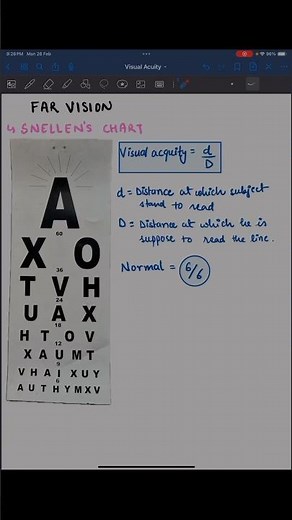 9:28 PM Mon 26 Feb
96%
Visual Acuity
FAR VISION
↳ SNELLEN'S CHART
A
60
X O
36
T V H
24
U A X
18
H T O V
12
X A U M T
9
V H A I X U Y
6
A U T H Y M X V
Visual acquity = d/D
d = Distance at which subject
stand to read
D = Distance at which he is
suppose to read the line.
Normal = 6/6